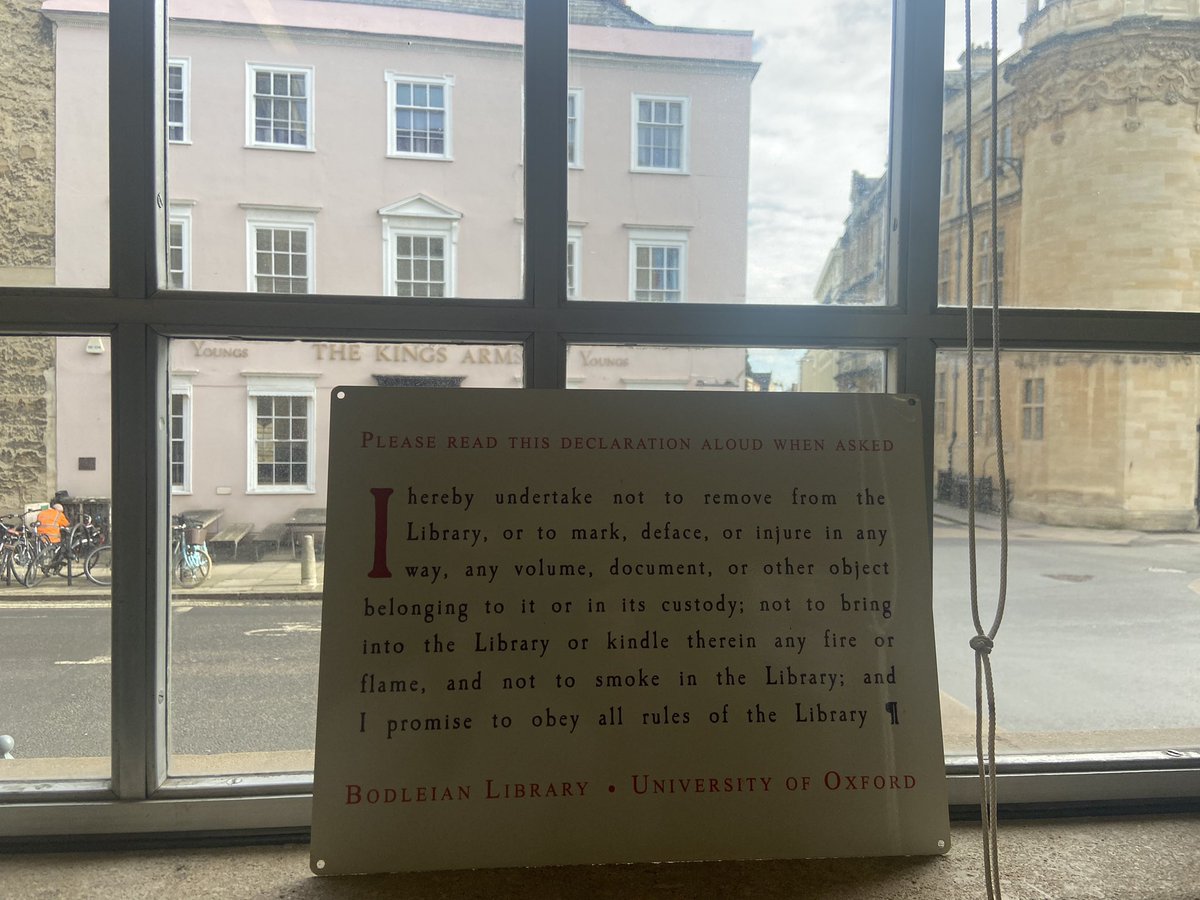 Youngs THE KINGS ARMS Youngs
PLEASE READ THIS DECLARATION ALOUD WHEN ASKED
I hereby undertake not to remove from the
Library, or to mark, deface, or injure in any
way, any volume, document, or other object
belonging to it or in its custody; not to bring
into the Library or kindle therein any fire or
flame, and not to smoke in the Library; and
I promise to obey all rules of the Library ¶
BODLEIAN LIBRARY • UNIVERSITY OF OXFORD